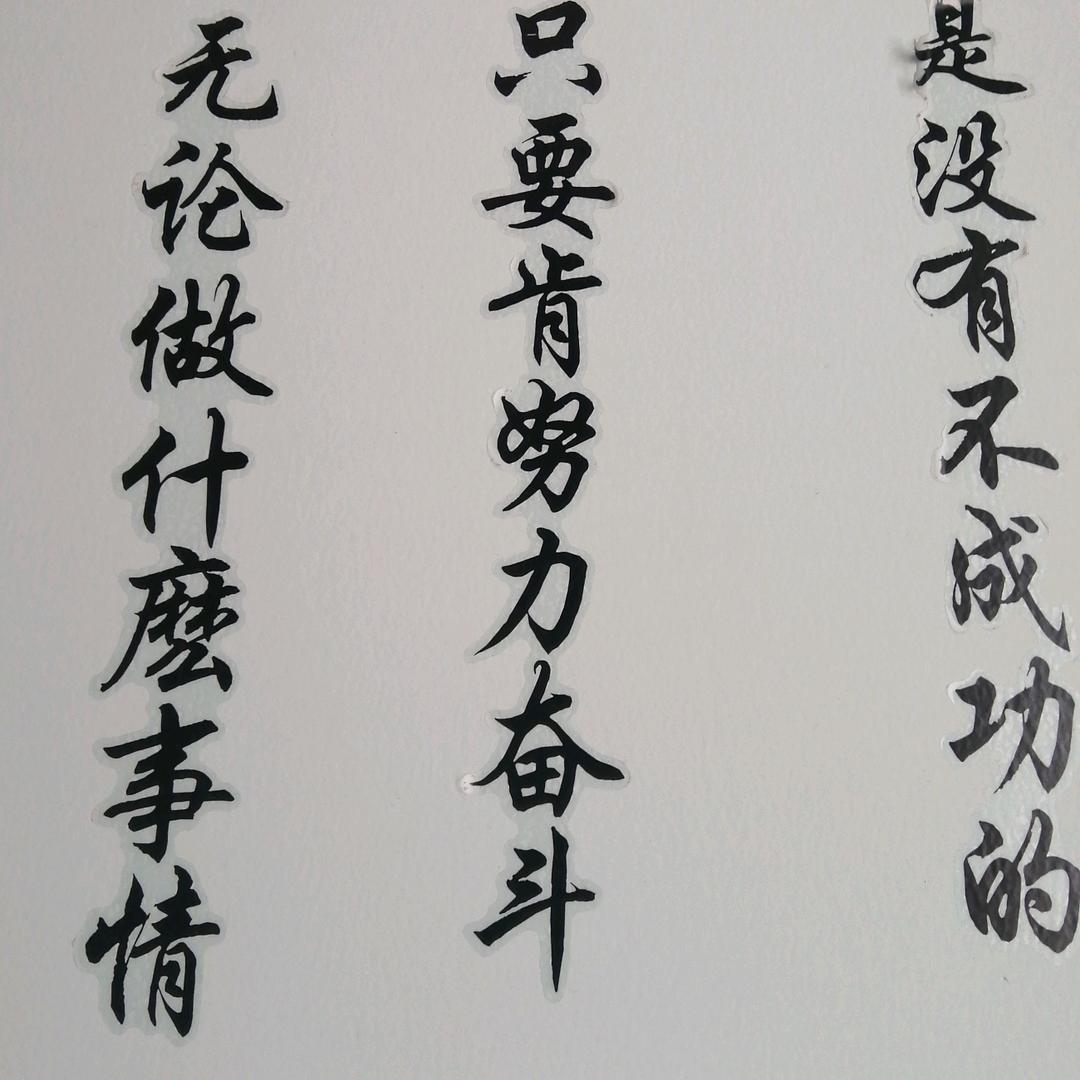 无论做什麽事情
只要肯努力奋斗
是没有不成功的